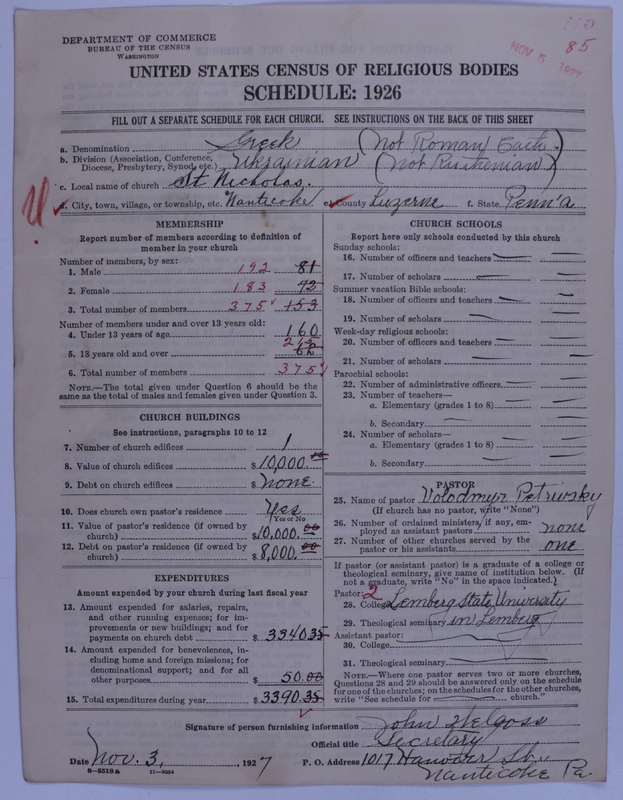 DEPARTMENT OF COMMERCE
BUREAU OF THE CENSUS
WASHINGTON
NOV 5
85
UNITED STATES CENSUS OF RELIGIOUS BODIES
SCHEDULE: 1926
FILL OUT A SEPARATE SCHEDULE FOR EACH CHURCH. SEE INSTRUCTIONS ON THE BACK OF THIS SHEET
a. Denomination Greek (not Roman Cath.)
b. Division (Association, Conference, Diocese, Presbytery, Synod, etc.) Ukrainian (not Ruthenian)
c. Local name of church St Nicholas.
d. City, town, village, or township, etc. Nanticoke e. County Luzerne f. State Penn'a
MEMBERSHIP
Report number of members according to definition of
member in your church
Number of members, by sex:
1. Male 192 81
2. Female 183 72
3. Total number of members 375 153
Number of members under and over 13 years old:
4. Under 13 years of age 160
5. 13 years old and over 215
6. Total number of members 375
NOTE.—The total given under Question 6 should be
same as the total of males and females given under Question 3.
CHURCH BUILDINGS
See instructions, paragraphs 10 to 12
7. Number of church edifices 1
8. Value of church edifices $ 10,000.00
9. Debt on church edifices $ none.
10. Does church own pastor's residence Yes
Yes or No
11. Value of pastor's residence (if owned by
church) $ 10,000.00
12. Debt on pastor's residence (if owned by
church) $ 8,000.00
EXPENDITURES
Amount expended by your church during last fiscal year
13. Amount expended for salaries, repairs,
and other running expenses; for im-
provements or new buildings; and for
payments on church debt $ 334035
14. Amount expended for benevolences, in-
cluding home and foreign missions; for
denominational support; and for all
other purposes $ 50.00
15. Total expenditures during year $ 3390.35
CHURCH SCHOOLS
Report here only schools conducted by this church
Sunday schools:
16. Number of officers and teachers
17. Number of scholars
Summer vacation Bible schools:
18. Number of officers and teachers
19. Number of scholars
Week-day religious schools:
20. Number of officers and teachers
21. Number of scholars
Parochial schools:
22. Number of administrative officers
23. Number of teachers—
a. Elementary (grades 1 to 8)
b. Secondary
24. Number of scholars—
a. Elementary (grades 1 to 8)
b. Secondary
PASTOR
25. Name of pastor Volodmyr Petriwsky
(If church has no pastor, write "None")
26. Number of ordained ministers, if any, em-
ployed as assistant pastors none
27. Number of other churches served by the
pastor or his assistants one
If pastor (or assistant pastor) is a graduate of a college or
theological seminary, give name of institution below. (If
not a graduate, write "No" in the space indicated.)
Pastor: 2
28. College Lemberg State University
29. Theological seminary in Lemberg
Assistant pastor:
30. College
31. Theological seminary
NOTE.—Where one pastor serves two or more churches,
Questions 28 and 29 should be answered only on the schedule
for one of the churches; on the schedules for the other churches,
write "See schedule for church."
Signature of person furnishing information John
Official title Secretary
Date Nov. 3, 1927 P. O. Address 1017 Hanover St.,
8—5518a 11—9034
Nanticoke Pa.